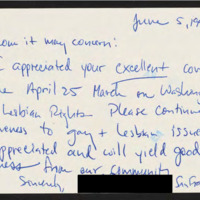 June 5, 19
om it may concern:
I appreciated your excellent cov
e April 25 March on Washin
Lesbian Rights. Please continu
veness to gay + lesbian issue
ppreciated and will yield good
ness from our community
Sincerely,